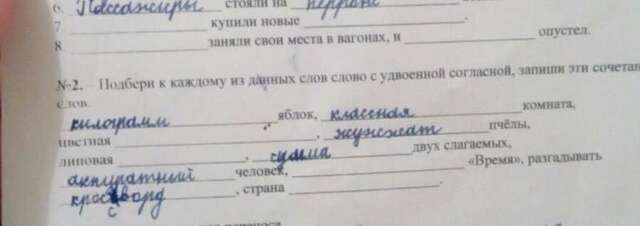 6. Пассажиры стояли на перроне
7. купили новые
8. заняли свои места в вагонах, и опустел.
№2. Подбери к каждому из данных слов слово с удвоенной согласной, запиши эти сочетан
слов.
килограмм яблок, классная комната,
цветная , жужжат пчёлы,
липовая , сумма двух слагаемых,
аккуратный человек, «Время», разгадывать
кроссворд , страна .